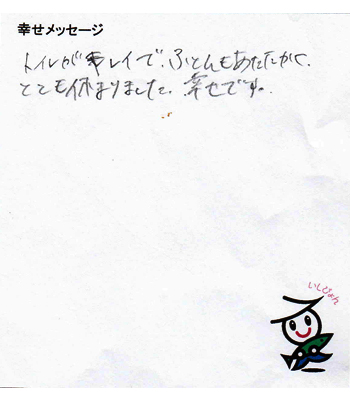 幸せメッセージ
トイレがキレイで、ふとんもあたたかく、
とても休まりました。幸せです。
いしぴょん